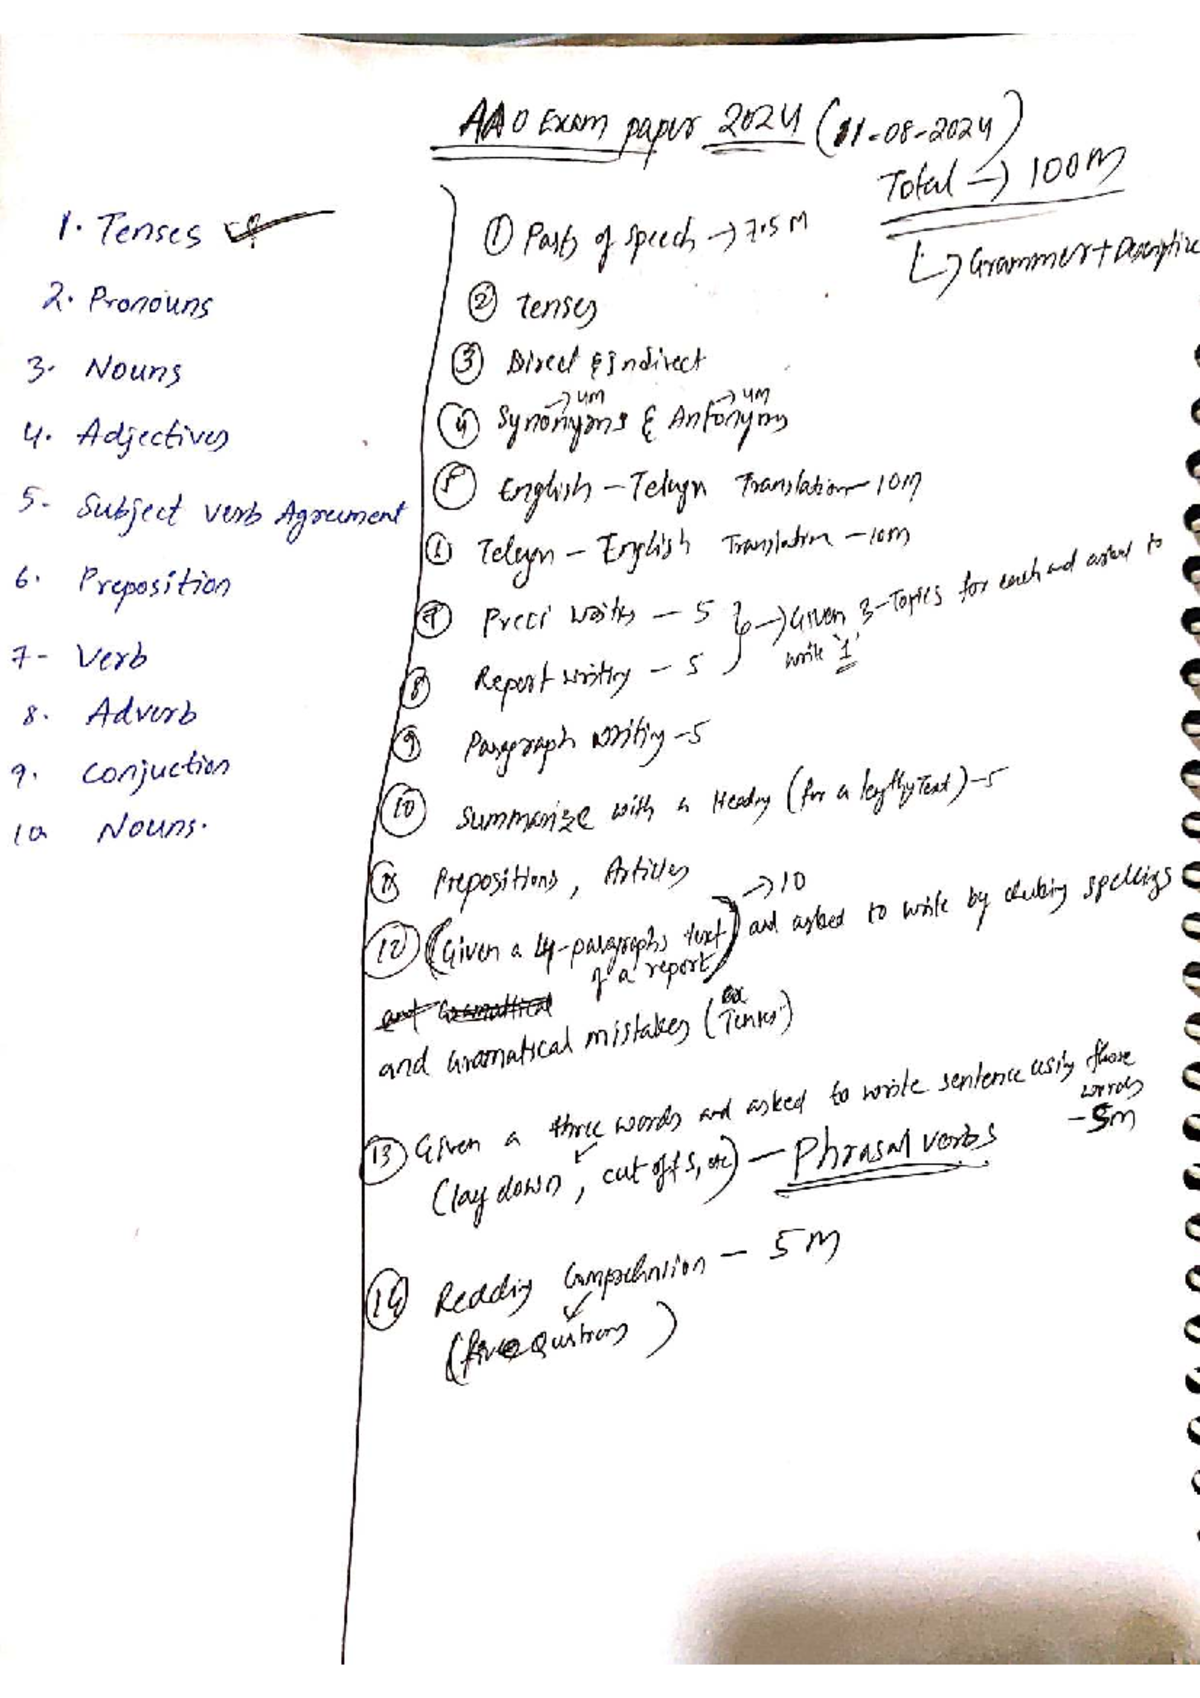 AAO Exam paper 2024 (11-08-2024)
Total → 100M
↳ Grammer + Descriptive
1. Tenses
2. Pronouns
3. Nouns
4. Adjectives
5. Subject verb Agreement
6. Preposition
7- Verb
8. Adverb
9. Conjuction
10 Nouns.
① Parts of speech → 7.5 M
② Tenses
③ Direct & Indirect
→ 4M → 4M
④ Synonyms & Antonyms
⑤ English - Telugu Translation - 10M
Telugu - English Translation - 10M
⑦ Preci writing - 5 } → Given 3-Topics for each and asked to
write '1'
⑧ Report writing - 5
⑨ Paragraph writing - 5
⑩ Summarize with a Heading (for a lengthy Text) - 5
⑪ Prepositions, Articles
→ 10
⑫ (Given a 4-paragraphs text and asked to write by checking spellings
of a report)
and Gramatical mistakes (ex Tenses)
⑬ Given a three words and asked to write sentence using those
words
- 5M
(lay down, cut offs, etc) - Phrasal verbs
⑭ Reading Comprehension - 5M
(five Questions)